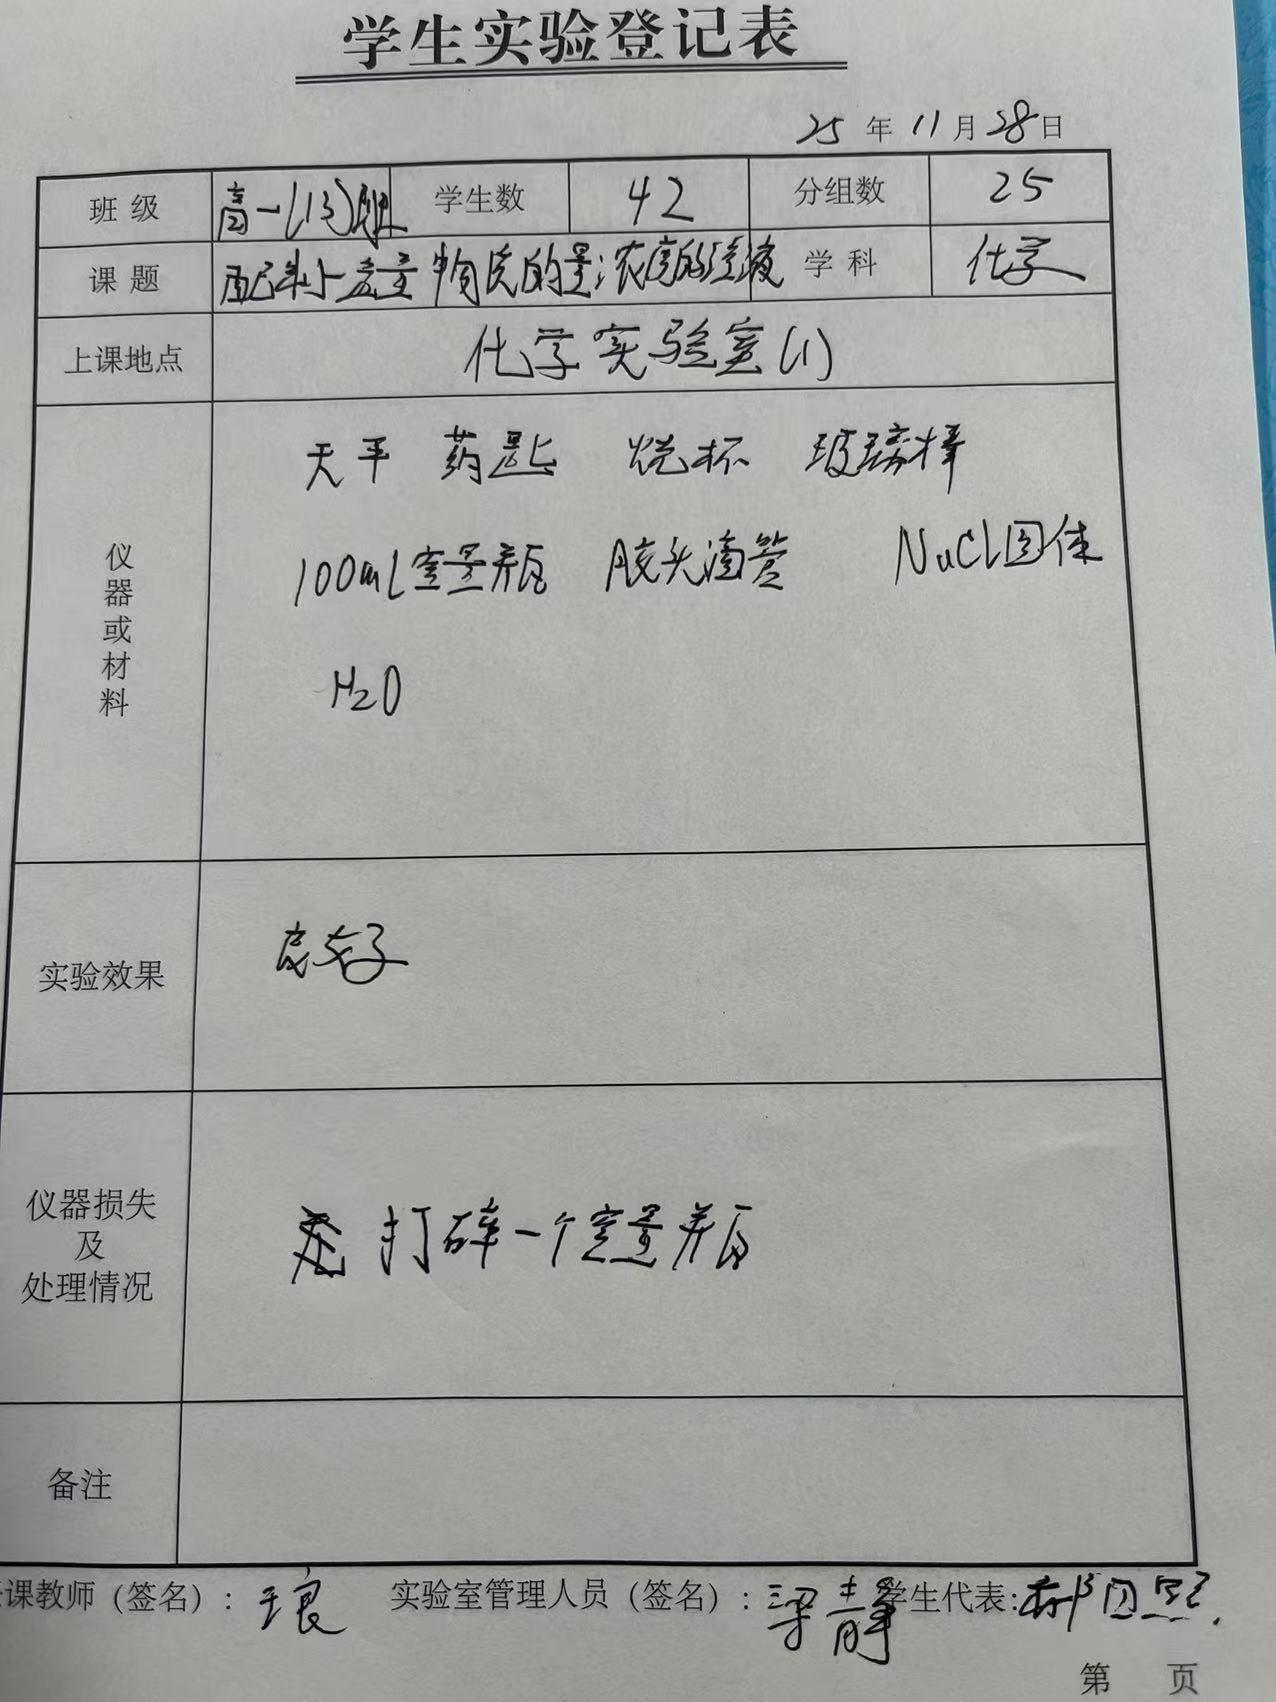 学生实验登记表
25年11月28日
班级 高一(13)班 学生数 42 分组数 25
课题 配制一定量物质的量浓度的溶液 学科 化学
上课地点 化学实验室(1)
仪器或材料
天平 药匙 烧杯 玻璃棒
100mL容量瓶 胶头滴管 NaCl固体
H2O
实验效果 良好
仪器损失及处理情况 打碎一个容量瓶
备注
课教师（签名）：王良 实验室管理人员（签名）：梁静 学生代表：
第 页